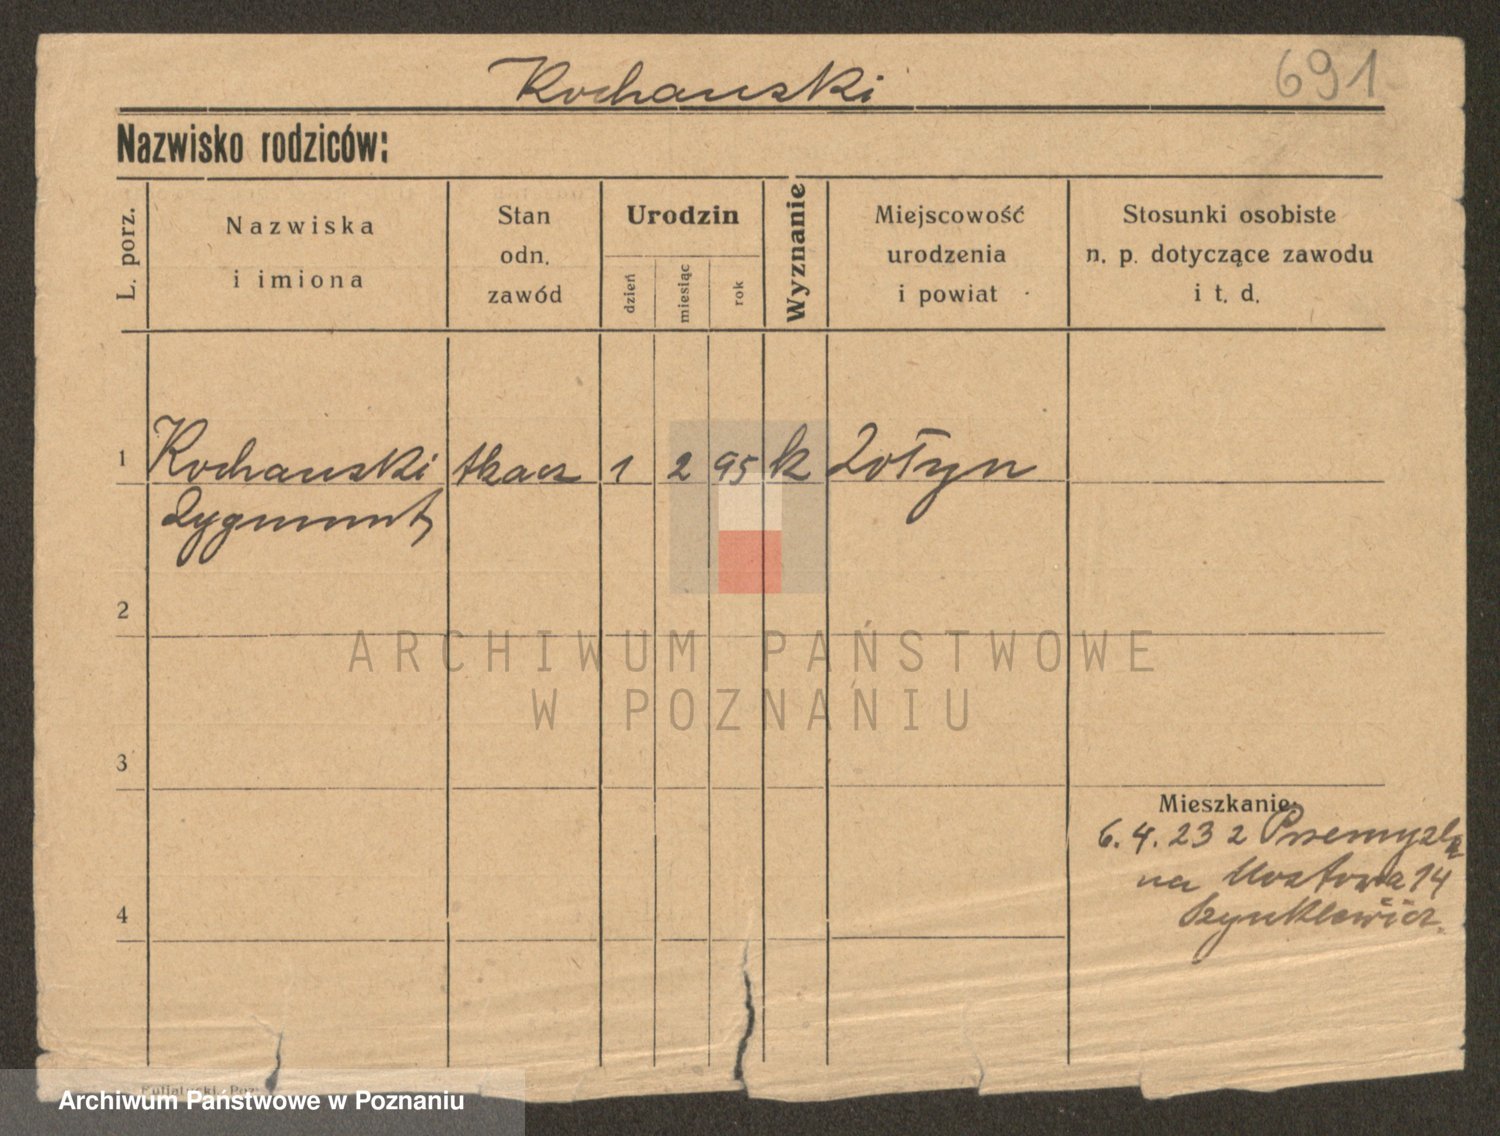 Kochanski
691
Nazwisko rodziców:
L. porz.
Nazwiska
i imiona
Stan
odn.
zawód
Urodzin
dzień
miesiąc
rok
Wyznanie
Miejscowość
urodzenia
i powiat
Stosunki osobiste
n. p. dotyczące zawodu
i t. d.
1 Kochanski tkacz 1 2 95 k Zołyn
Zygmunt
2
ARCHIWUM PAŃSTWOWE
W POZNANIU
3
Mieszkanie:
6.4.23 z Przemyśla
na Mostowa 14
4
Archiwum Państwowe w Poznaniu